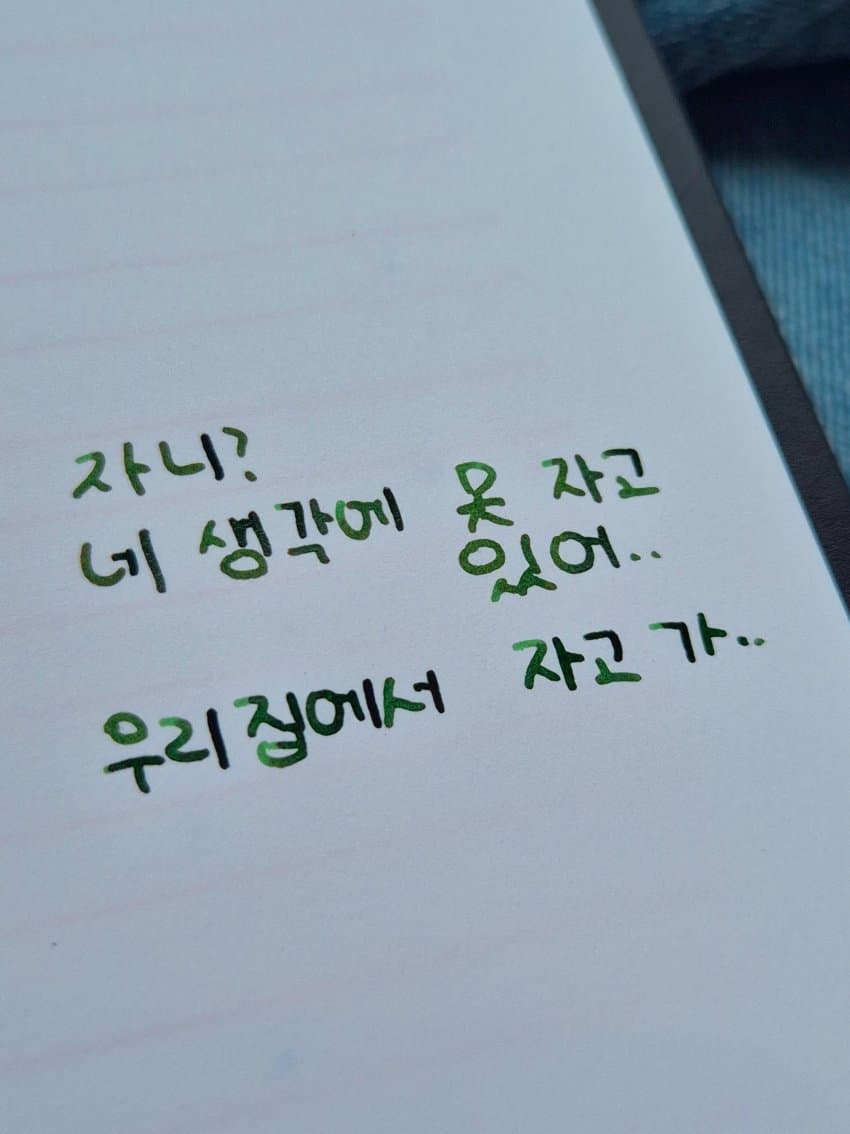 자니?
네 생각에 못 자고
있어..
우리집에서 자고 가..